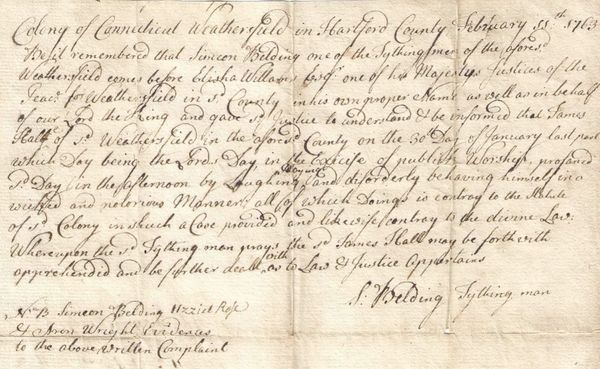 Colony of Connecticut Weathersfield in Hartford County February 11th 1763
Be it remembered that Simeon Belding one of the Tything men of the afores.d
Weathersfield comes before Elisha Williams Esqr one of his Majestys Justices of the
Peace for Weathersfield in sd County in his own proper Name as well as in behalf
of our Lord the King and gave sd Justice to understand & be informed that James
Hall of sd Weathersfield in the aforesd County on the 30th Day of January last past
which Day being the Lords Day in the Exercise of publick Worship, profaned
sd Day in the afternoon by Laughing and disorderly behaving himself in a
wicked and notorious Manner, all of which Doings is contray to the Statute
of sd Colony in such a Case provided and likewise contray to the divine Law.
Whereupon the sd Tything man prays the sd James Hall may be forth with
apprehended and be further dealt with as to Law & Justice Appertains
S. Belding Tything man
NB Simeon Belding Uzziel Rose
& Aron Wright Evidences
to the above written Complaint